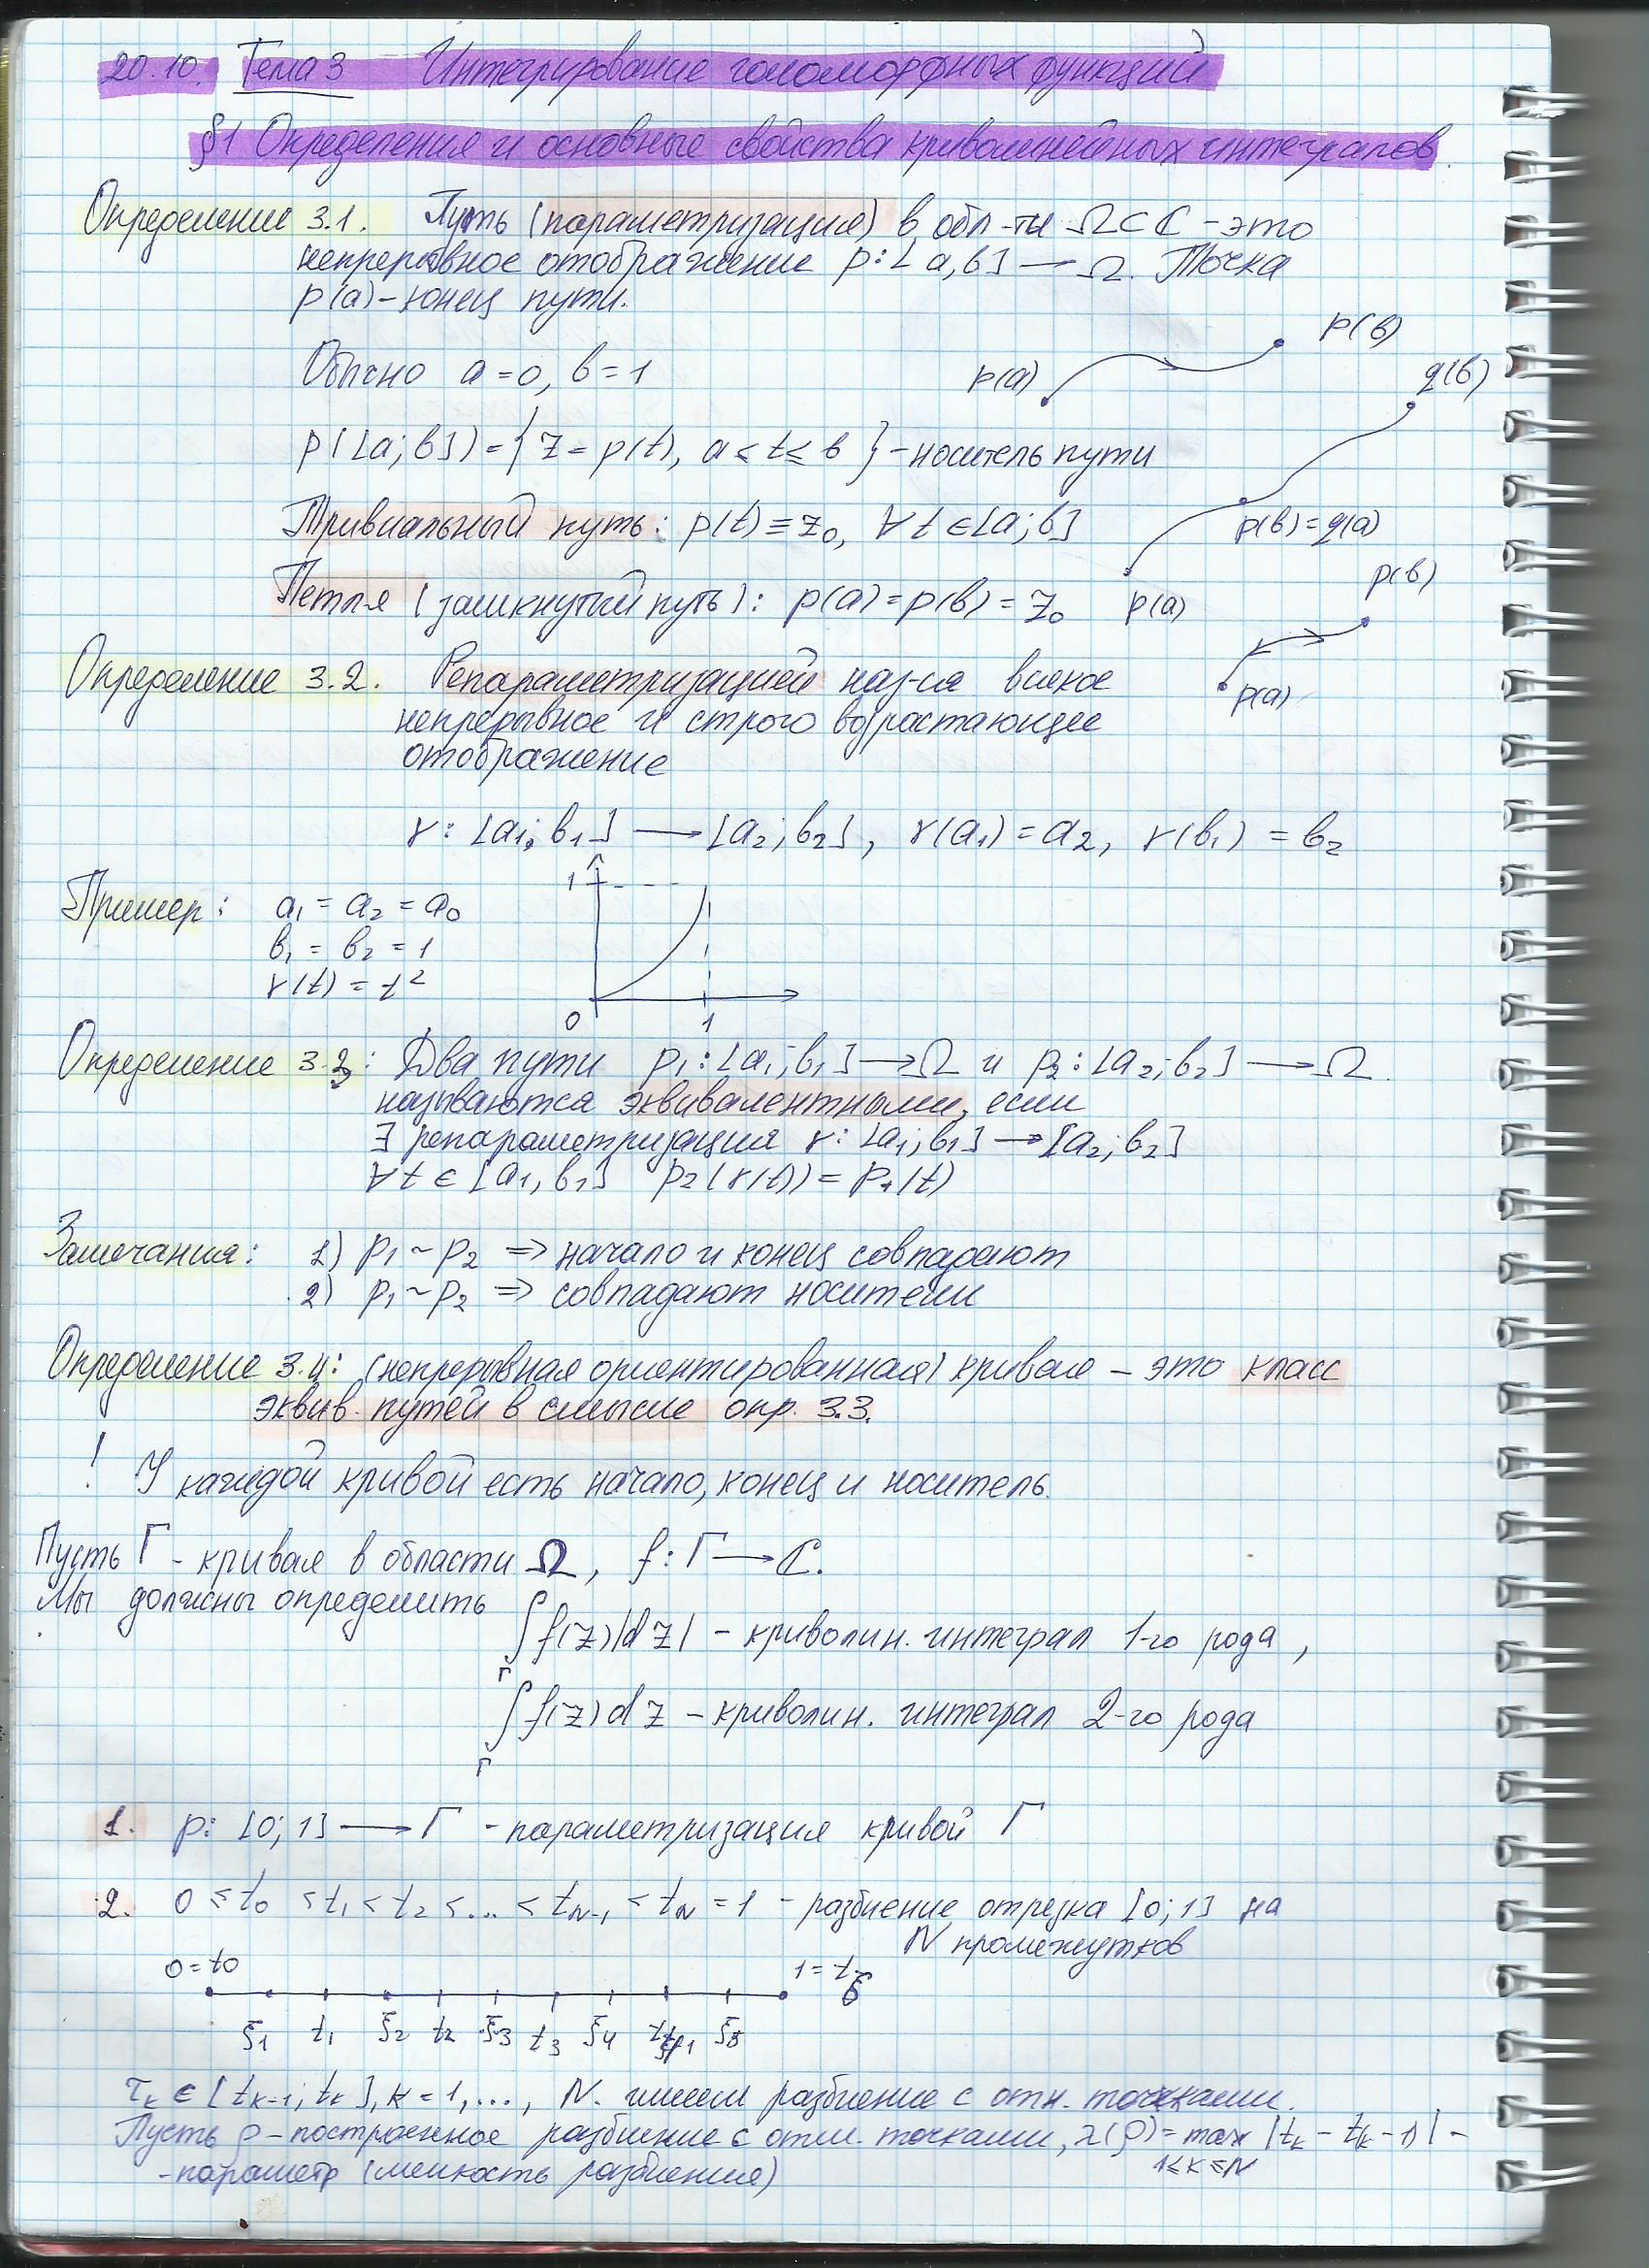 20.10. Тема 3 Интегрирование голоморфных функций
§1 Определения и основные свойства криволинейных интегралов.
Определение 3.1. Путь (параметризация) в обл-ти Ω⊂ℂ - это
непрерывное отображение p: [a,b] → Ω. Точка
p(a) - конец пути.
p(b)
Обычно a=0, b=1
p(a)
q(b)
p([a;b]) = {z = p(t), a ≤ t ≤ b} - носитель пути
Тривиальный путь: p(t) ≡ z₀, ∀ t ∈ [a;b]
p(b)=q(a)
p(b)
Петля (замкнутый путь): p(a) = p(b) = z₀
p(a)
Определение 3.2. Репараметризацией наз-ся всякое
p(a)
непрерывное и строго возрастающее
отображение
γ: [a₁; b₁] → [a₂; b₂], γ(a₁) = a₂, γ(b₁) = b₂
1
Пример: a₁ = a₂ = a₀
b₁ = b₂ = 1
γ(t) = t²
0 1
Определение 3.3: Два пути p₁: [a₁; b₁] → Ω и p₂: [a₂; b₂] → Ω.
называются эквивалентными, если
∃ репараметризация γ: [a₁; b₁] → [a₂; b₂]
∀ t ∈ [a₁, b₁] p₂(γ(t)) = p₁(t)
Замечания: 1) p₁ ~ p₂ => начало и конец совпадают
2) p₁ ~ p₂ => совпадают носители
Определение 3.4: (непрерывная ориентированная) кривая - это класс
эквив. путей в смысле опр. 3.3.
! У каждой кривой есть начало, конец и носитель.
Пусть Γ - кривая в области Ω, f: Γ → ℂ.
Мы должны определить
∫_Γ f(z)|dz| - криволин. интеграл 1-го рода,
∫_Γ f(z)dz - криволин. интеграл 2-го рода
1. p: [0; 1] → Γ - параметризация кривой Γ
2. 0 ≤ t₀ < t₁ < t₂ < ... < t_{N-1} < t_N = 1 - разбиение отрезка [0; 1] на
N промежутков
0 = t0 1 = t
ξ₁ t₁ ξ₂ t₂ ξ₃ t₃ ξ₄ ξ₅
τ_k ∈ [t_{k-1}; t_k], k = 1, ..., N. имеем разбиение с отм. точками.
Пусть ρ - построенное разбиение с отм. точками, λ(ρ) = max_{1≤k≤N} |t_k - t_{k-1}| -
- параметр (мелкость разбиения)